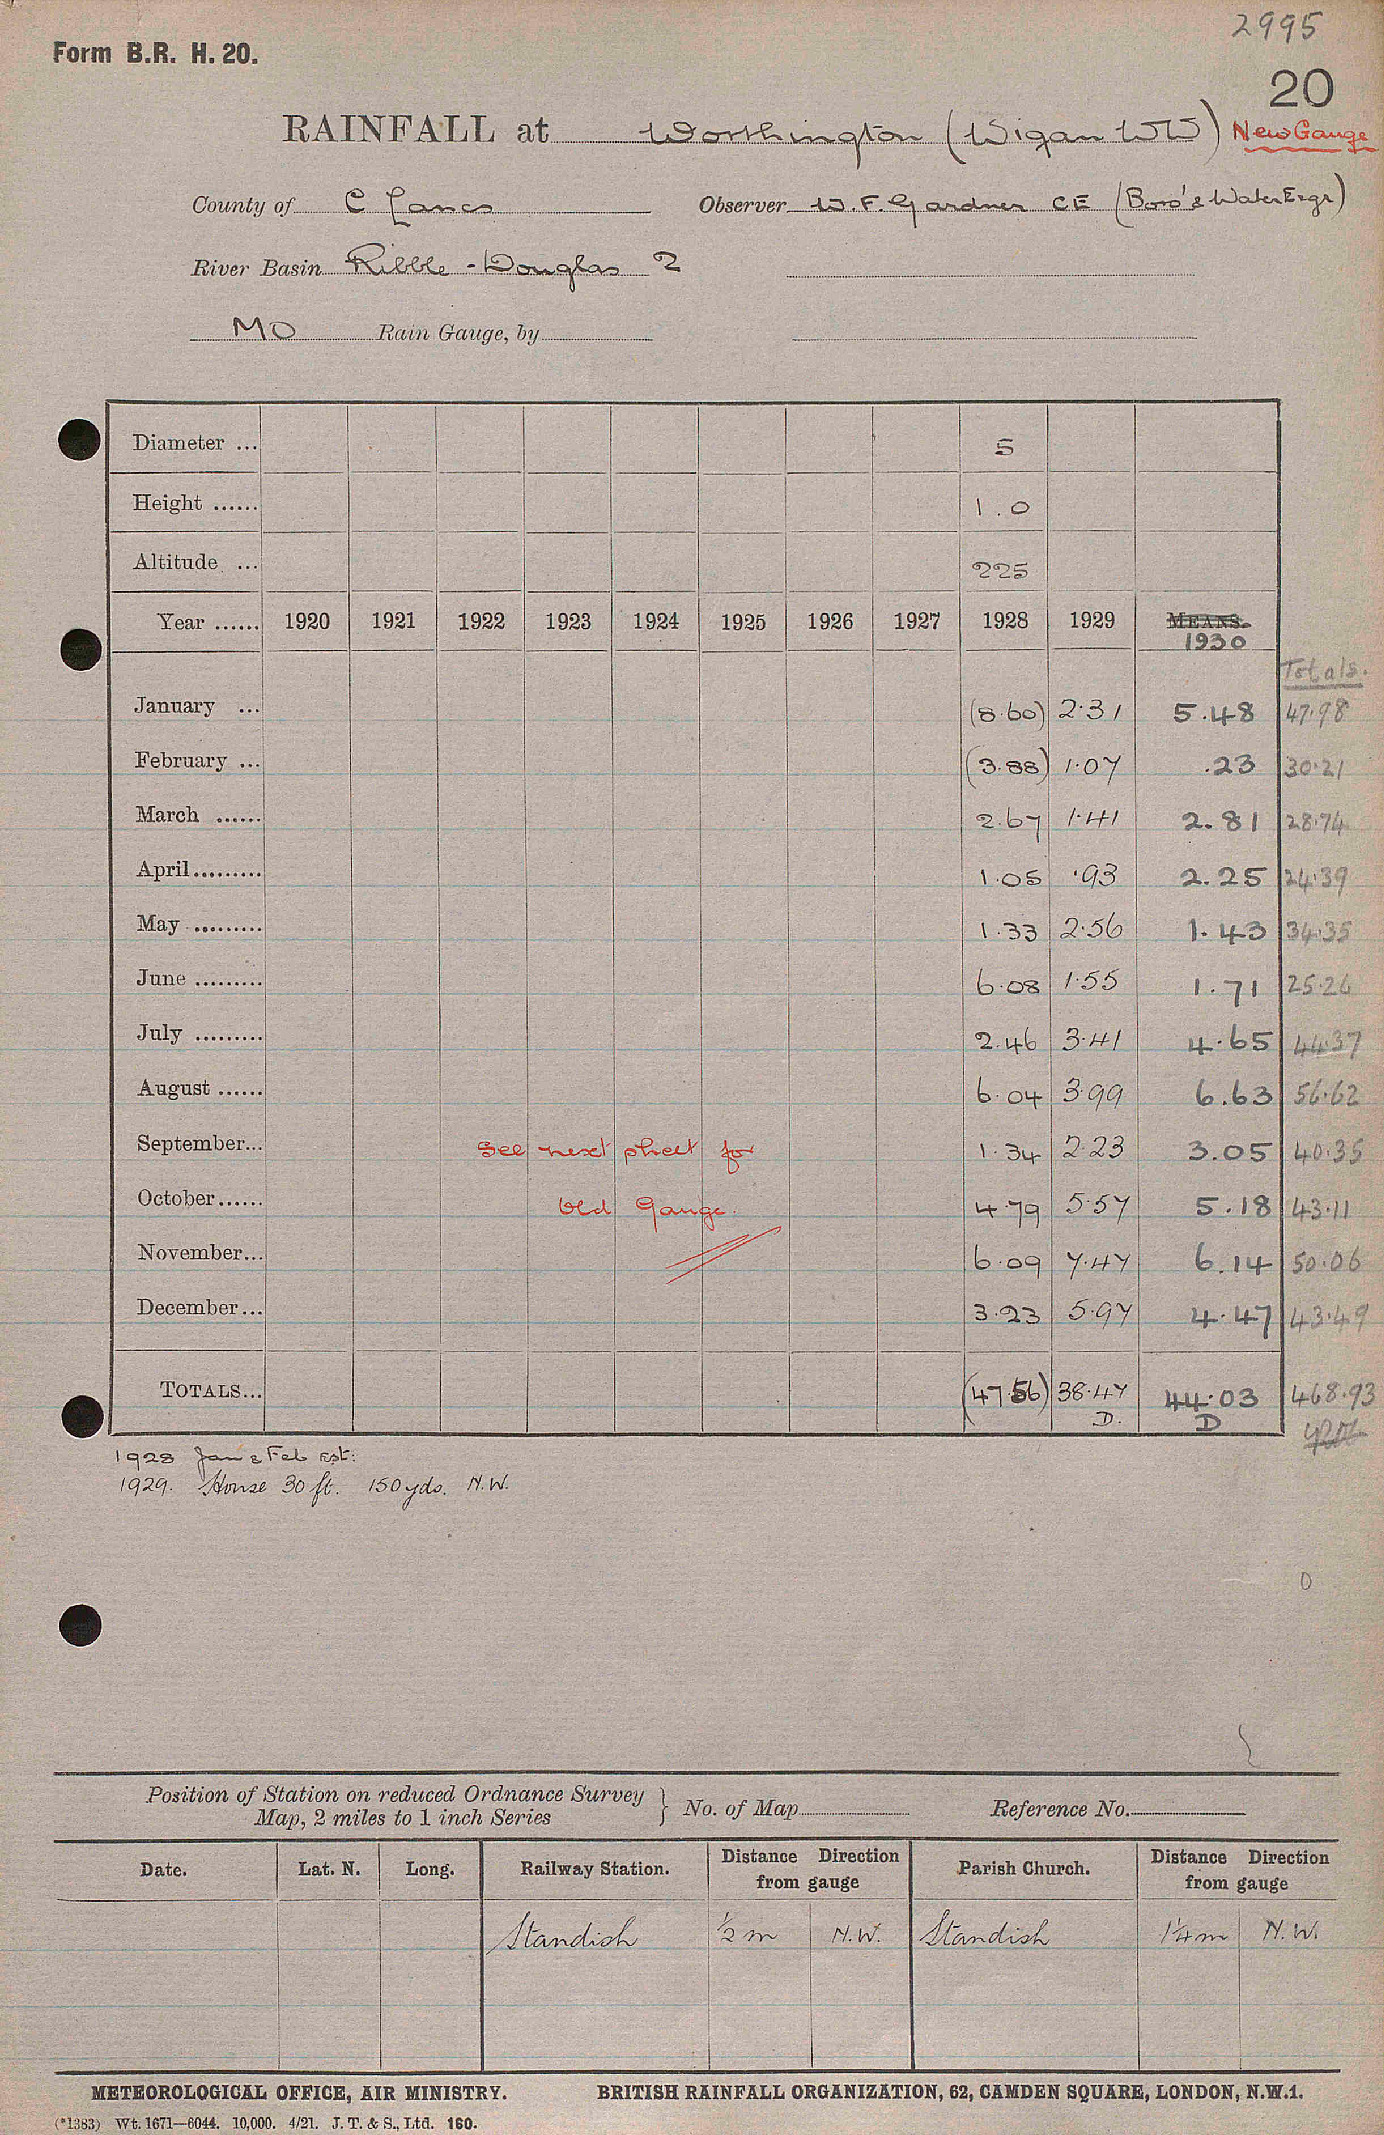 2995
Form B.R. H. 20.
20
RAINFALL at Worthington (Wigan WW) New Gauge
County of C Lancs Observer W. F. Gardner CE (Boro's & Water Engr)
River Basin Ribble - Douglas 2
MO Rain Gauge, by
Diameter ... 5
Height ...... 1.0
Altitude ... 225
Year ...... 1920 1921 1922 1923 1924 1925 1926 1927 1928 1929 MEANS. 1930
Totals.
January ... (8.60) 2.31 5.48 47.98
February ... (3.88) 1.07 .23 30.21
March ...... 2.67 1.41 2.81 28.74
April......... 1.05 .93 2.25 24.39
May ......... 1.33 2.56 1.43 34.35
June ......... 6.08 1.55 1.71 25.26
July ......... 2.46 3.41 4.65 44.37
August ...... 6.04 3.99 6.63 56.62
September... 1.34 2.23 3.05 40.35
See next sheet for
October...... 4.79 5.57 5.18 43.11
Old Gauge.
November... 6.09 7.47 6.14 50.06
December... 3.23 5.97 4.47 43.49
TOTALS... (47.56) 38.47 44.03 468.93
D. D
1928 Jan & Feb Est:
1929. House 30 ft. 150 yds. N.W.
0
Position of Station on reduced Ordnance Survey
Map, 2 miles to 1 inch Series } No. of Map Reference No.
Date. Lat. N. Long. Railway Station. Distance Direction from gauge Parish Church. Distance Direction from gauge
Standish ½ m N.W. Standish 1¼ m N.W.
METEOROLOGICAL OFFICE, AIR MINISTRY. BRITISH RAINFALL ORGANIZATION, 62, CAMDEN SQUARE, LONDON, N.W.1.
(*1383) Wt. 1671—6044. 10,000. 4/21. J. T. & S., Ltd. 160.